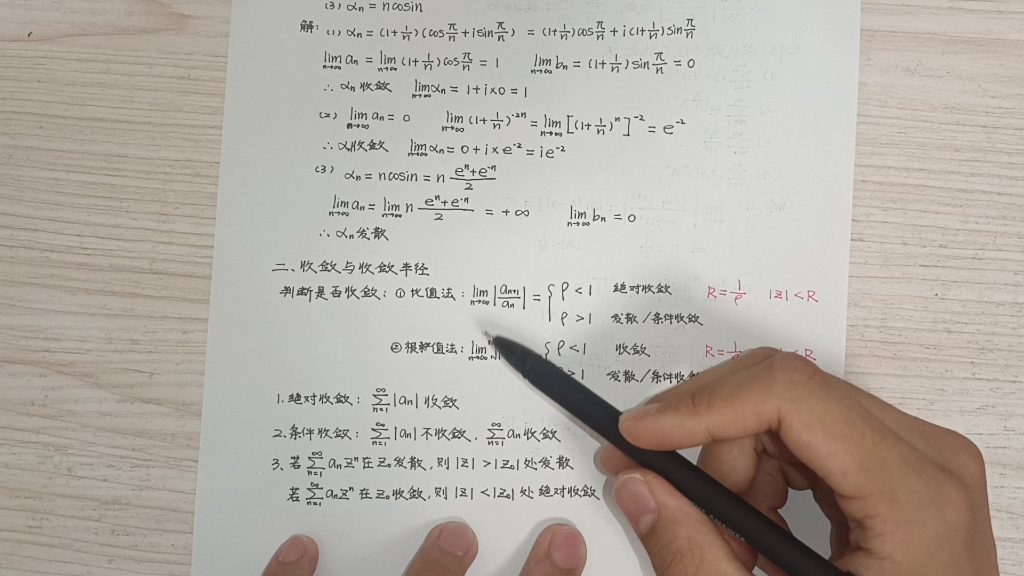 (3) αn = ncosin
解: (1) αn = (1+1/n)(cosπ/n+isinπ/n) = (1+1/n)cosπ/n + i(1+1/n)sinπ/n
lim n→∞ an = lim n→∞ (1+1/n)cosπ/n = 1 lim n→∞ bn = (1+1/n)sinπ/n = 0
∴ αn 收敛 lim n→∞ αn = 1+i×0 = 1
(2) lim n→∞ an = 0 lim n→∞ (1+1/n)^-2n = lim n→∞ [(1+1/n)^n]^-2 = e^-2
∴ α收敛 lim n→∞ αn = 0+i×e^-2 = ie^-2
(3) αn = ncosin = n (e^n+e^-n)/2
lim n→∞ an = lim n→∞ n (e^n+e^-n)/2 = +∞ lim n→∞ bn = 0
∴ αn 发散
二、收敛与收敛半径
判断是否收敛: ① 比值法: lim n→∞ |an+1/an| = { ρ<1 绝对收敛 R=1/ρ |z|<R
ρ>1 发散/条件收敛
② 根值法: lim n→∞ { ρ<1 收敛 R=1 R
>1 发散/条件收敛
1. 绝对收敛: ∑ n=1 ∞ |an| 收敛
2. 条件收敛: ∑ n=1 ∞ |an| 不收敛, ∑ n=1 ∞ an 收敛
3. 若 ∑ n=1 ∞ anz^n 在 z0 发散, 则 |z|>|z0| 处发散
若 ∑ n=1 ∞ anz^n 在 z0 收敛, 则 |z|<|z0| 处 绝对收敛